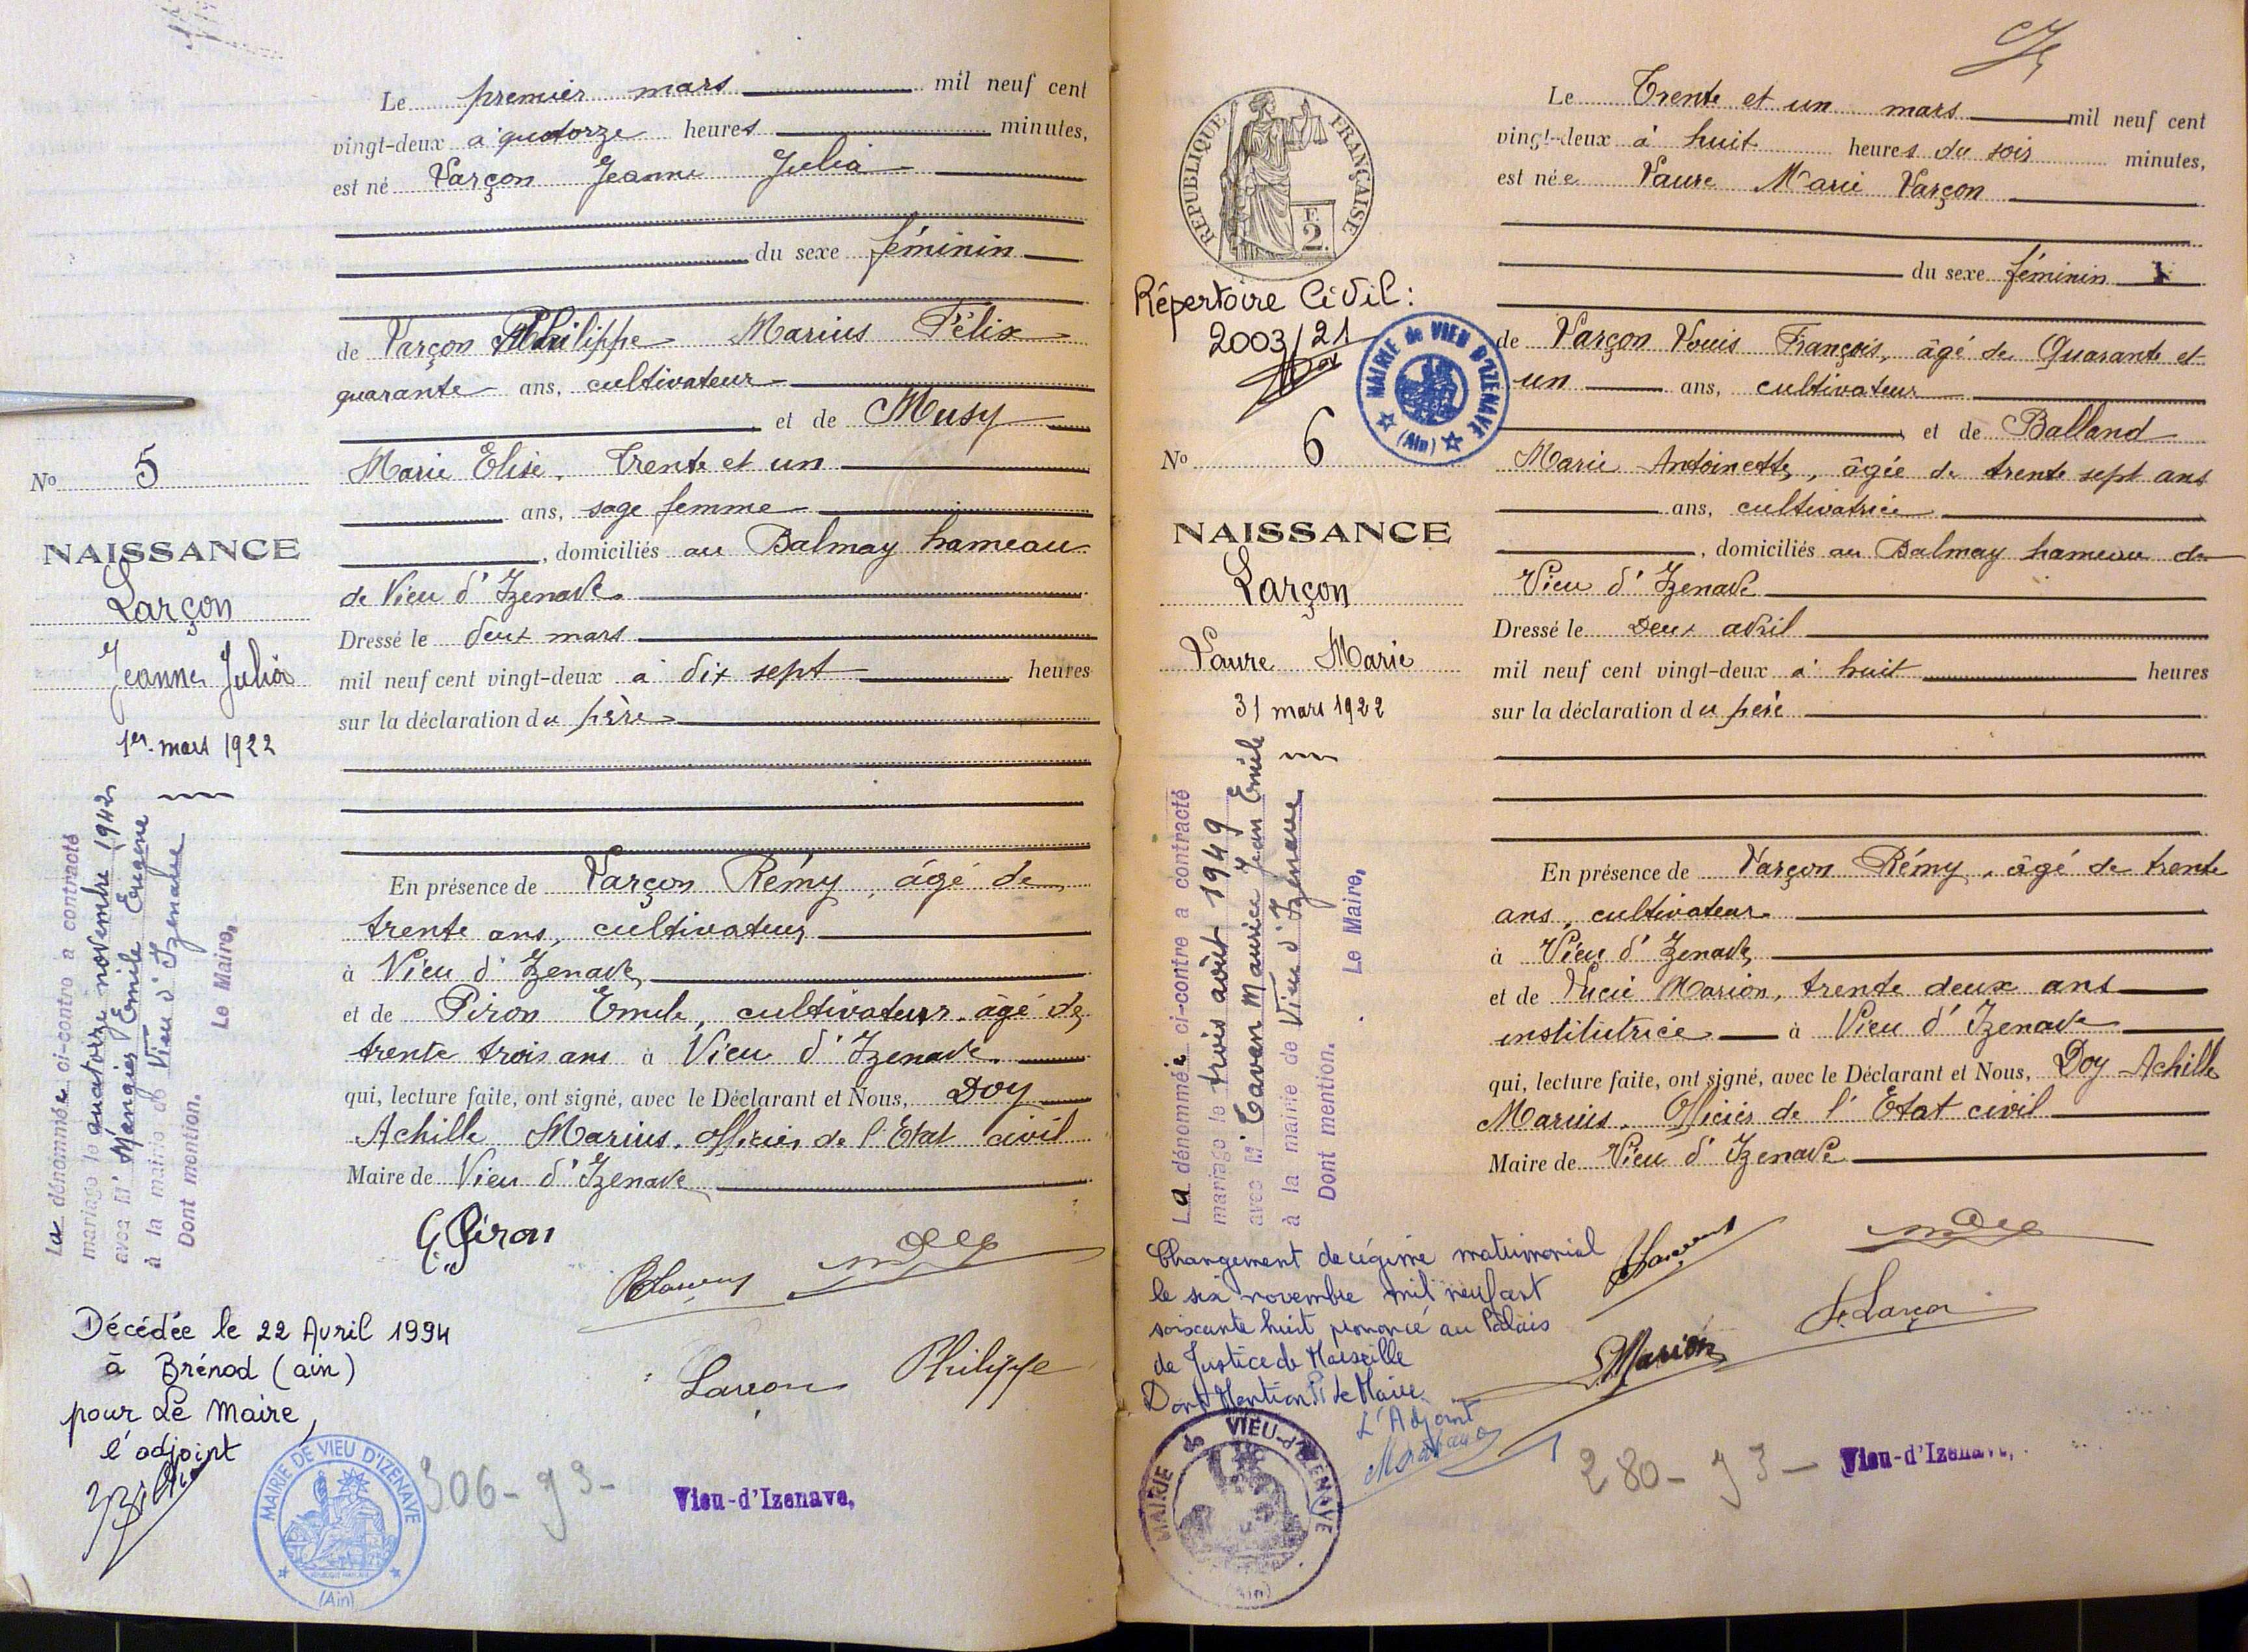 Le premier mars mil neuf cent
vingt-deux à quatorze heures minutes,
est né Larçon Jeanne Julia
du sexe féminin
de Larçon Philippe Marius Félix
quarante ans, cultivateur
et de Musy
Marie Elise, trente et un
ans, sage femme
, domiciliés au Balmay hameau
de Vieu d'Izenave.
Dressé le deux mars
mil neuf cent vingt-deux à dix sept heures
sur la déclaration du père
En présence de Larçon Rémy, âgé de
trente ans, cultivateur
à Vieu d'Izenave
et de Piron Emile, cultivateur, âgé de
trente trois ans à Vieu d'Izenave.
qui, lecture faite, ont signé, avec le Déclarant et Nous, Doy
Achille Marius, officier de l'Etat civil
Maire de Vieu d'Izenave
E. Piron
Larçon Philippe
Vieu-d'Izenave,
306-93-
No 5
NAISSANCE
Larçon
Jeanne Julia
1er mars 1922
La dénommée ci-contre a contracté
mariage le quatorze novembre 1942
avec Mr Mangier Emile Eugene
à la mairie de Vieu d'Izenave
Dont mention.
Le Maire,
Décédée le 22 Avril 1994
à Brénod (ain)
pour Le Maire,
l'adjoint
MAIRIE DE VIEU D'IZENAVE
(Ain)
Le Trente et un mars mil neuf cent
vingt-deux à huit heures du soir minutes,
est née Laure Marie Larçon
du sexe féminin
de Larçon Louis François, âgé de Quarante et
un ans, cultivateur
, et de Balland
Marie Antoinette, âgée de trente sept ans
ans, cultivatrice
, domiciliés au Balmay hameau de
Vieu d'Izenave
Dressé le Deux avril
mil neuf cent vingt-deux à huit heures
sur la déclaration du père
En présence de Larçon Rémy, âgé de trente
ans, cultivateur
à Vieu d'Izenave
et de Lucie Marion, trente deux ans
institutrice à Vieu d'Izenave
qui, lecture faite, ont signé, avec le Déclarant et Nous, Doy Achille
Marius, Officier de l'Etat civil
Maire de Vieu d'Izenave
L. Marion
Larçon
280-93-
Vieu-d'Izenave,
RÉPUBLIQUE FRANÇAISE
E.
2.
Répertoire Civil:
2003/21
MAIRIE de VIEU D'IZENAVE
(Ain)
No 6
NAISSANCE
Larçon
Laure Marie
31 mars 1922
La dénommée ci-contre a contracté
mariage le trois août 1949
avec Mr Tavan Maurice Jean Emile
à la mairie de Vieu d'Izenave
Dont mention.
Le Maire,
Changement de régime matrimonial
le six novembre mil neuf cent
soixante huit prononcé au Palais
de Justice de Marseille
Dont Mention. Pr Le Maire
L'Adjoint
MAIRIE de VIEU-d'IZENAVE
(Ain)